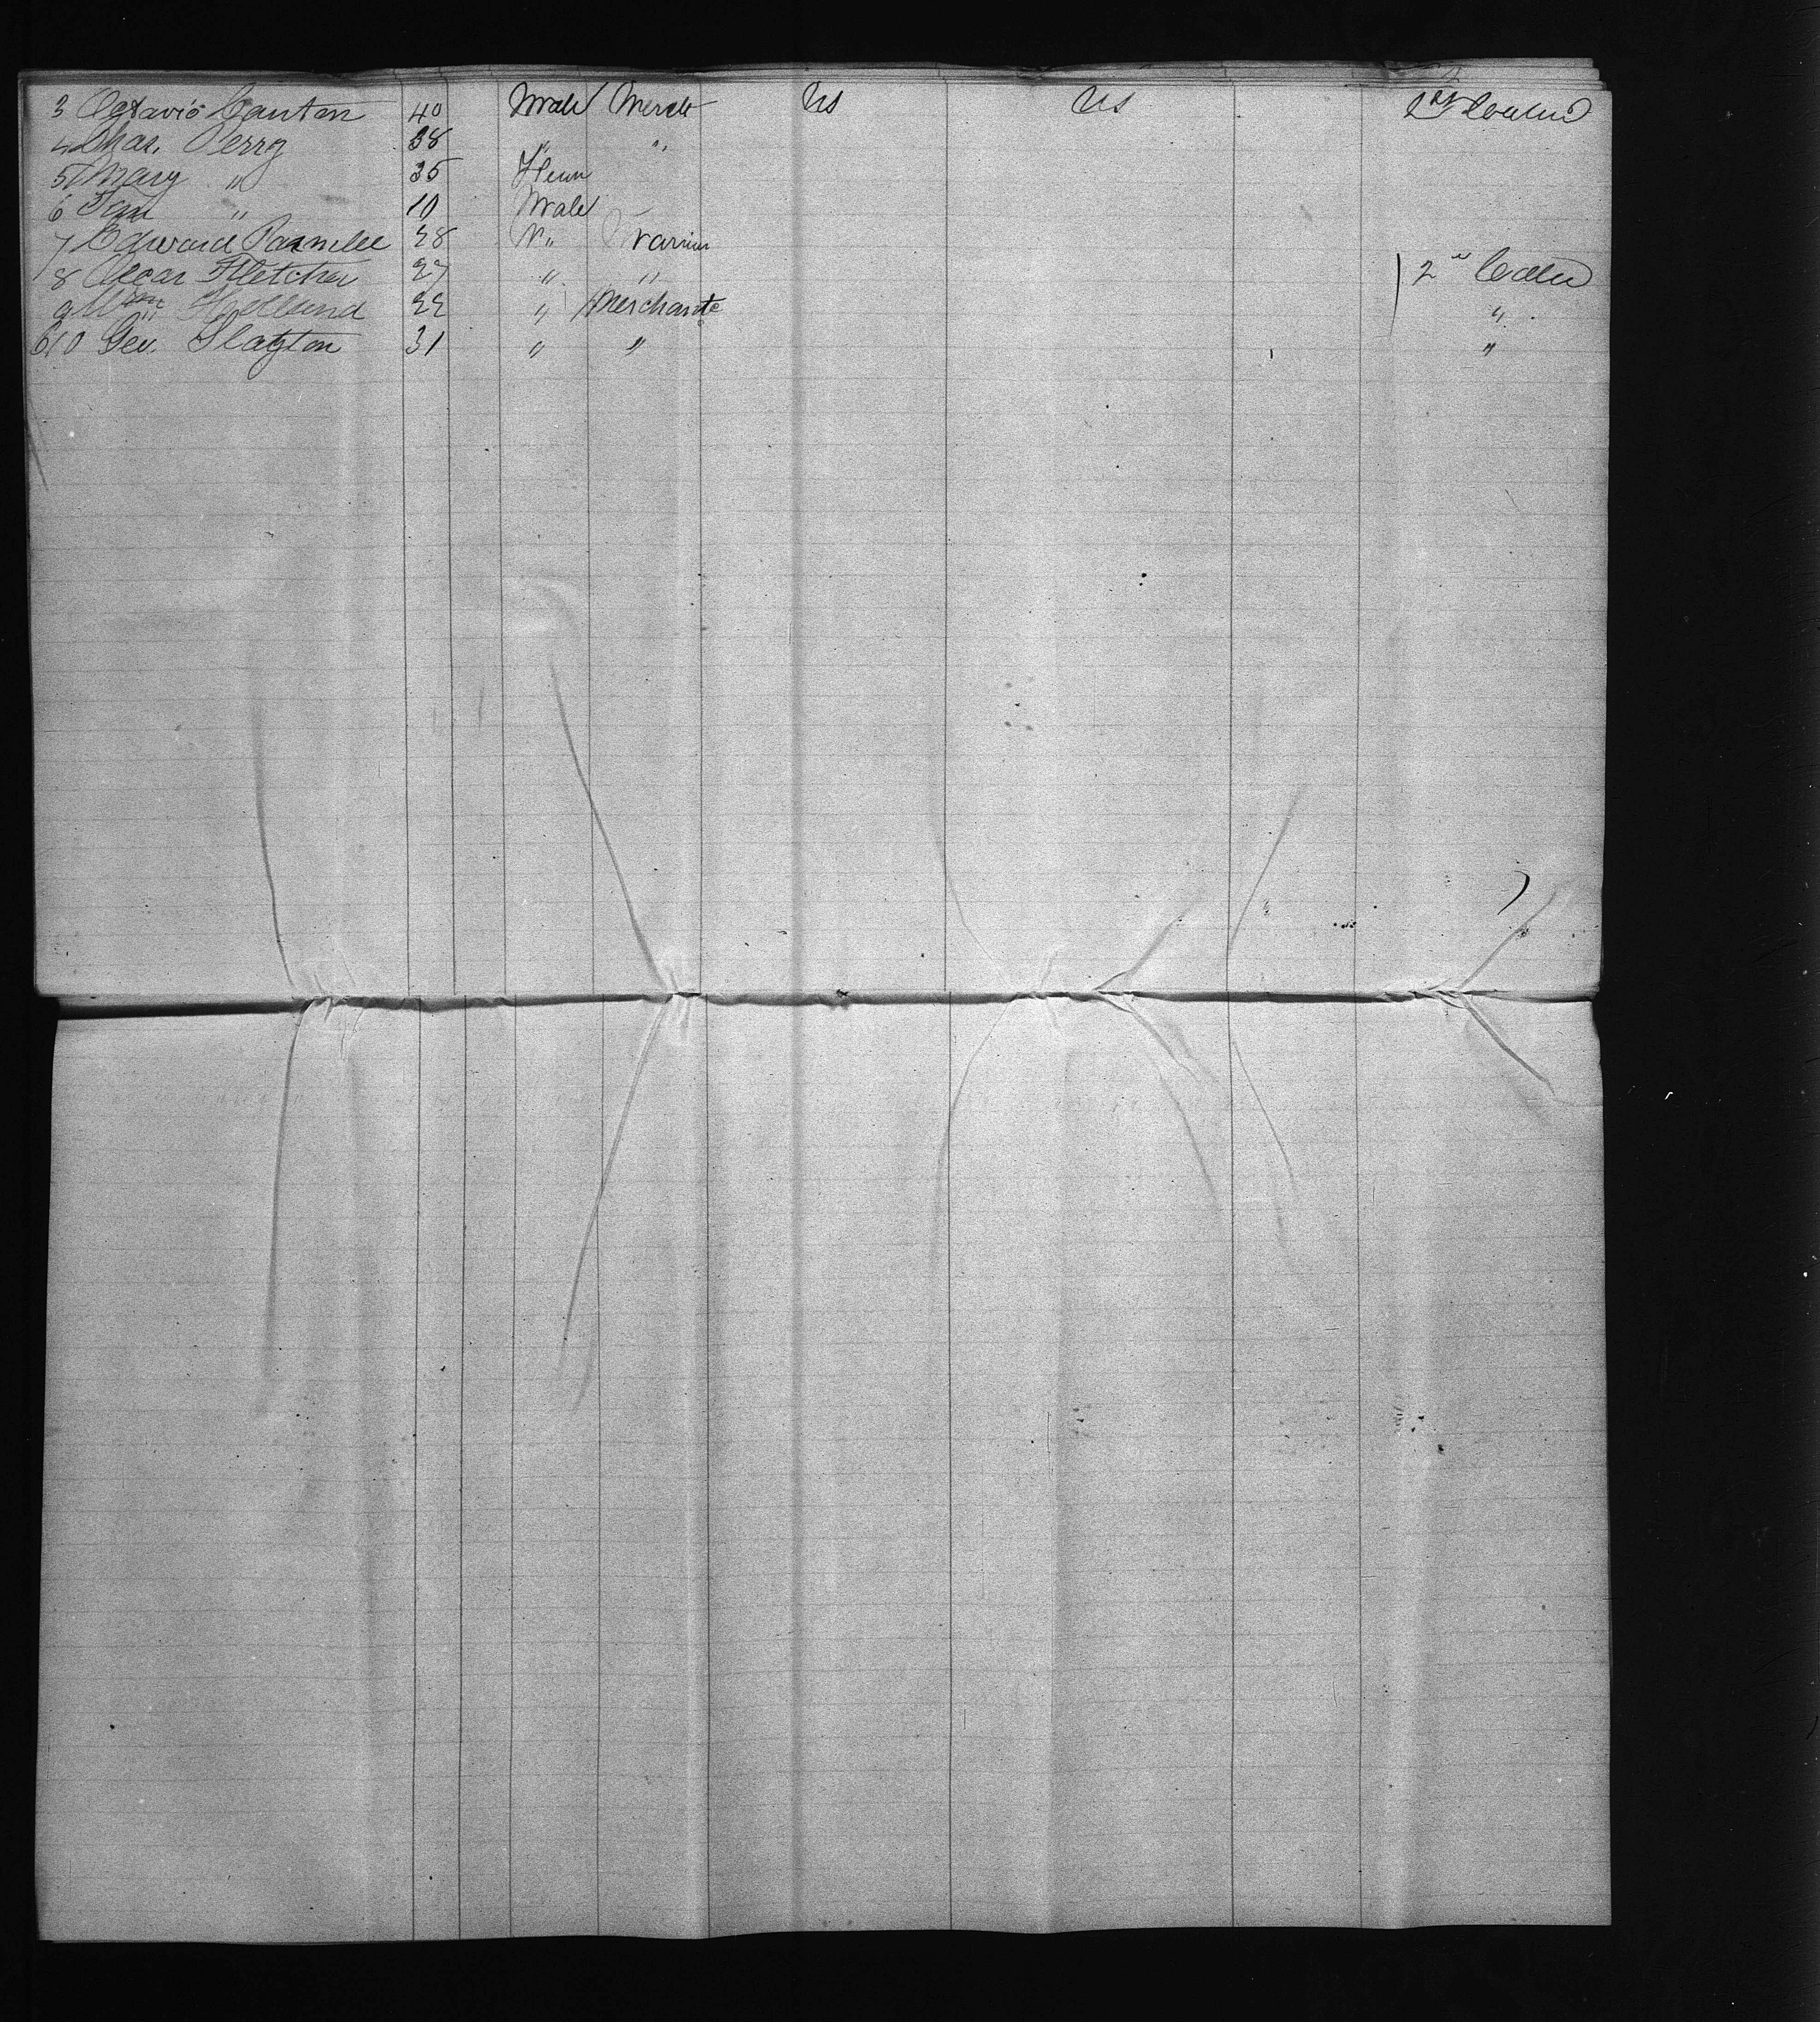 3 Octavio Canton 40 Male Mercht US US 1st Cabin
4 Chas. Perry 38 " "
5 Mary " 35 Fem
6 " 10 Male
7 Edward Parmelee 28 "
8 Oscar Fletcher 27 " " 2nd Cabin
9 Wm Holland 22 " Merchant "
10 Geo. Slayton 31 " " "